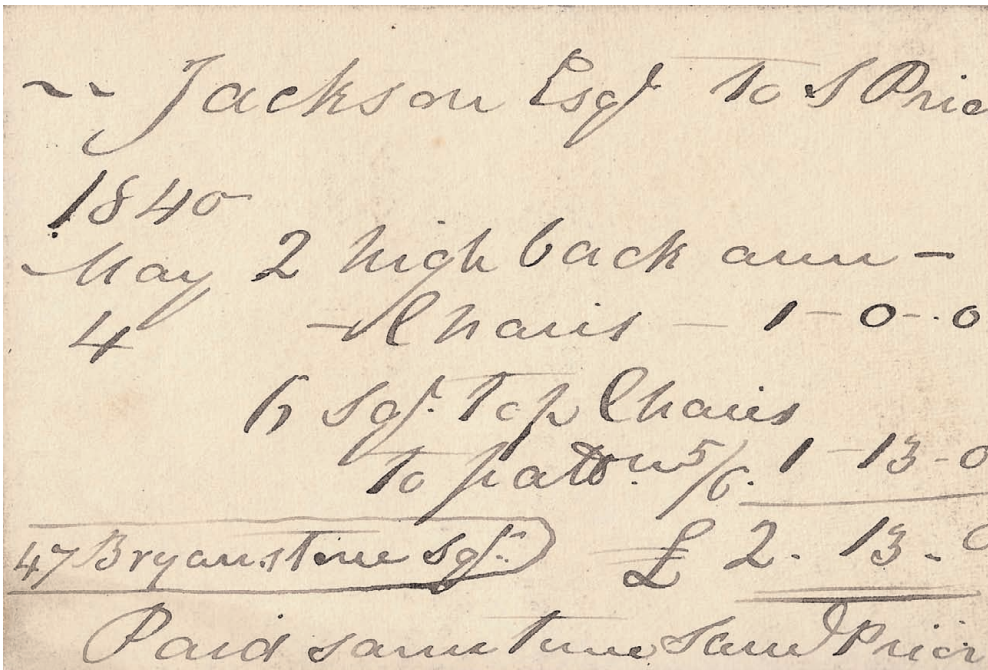 ~ ~ Jackson Esqr To S Prior
1840
May 2 high back arm -
4 - Chairs - 1 - 0 - 0
6 Sqr. Top Chairs
To pattn 5/6. 1 - 13 - 0
47 Bryanstone Sqr. £ 2 - 13 - 0
Paid same time Saml Prior